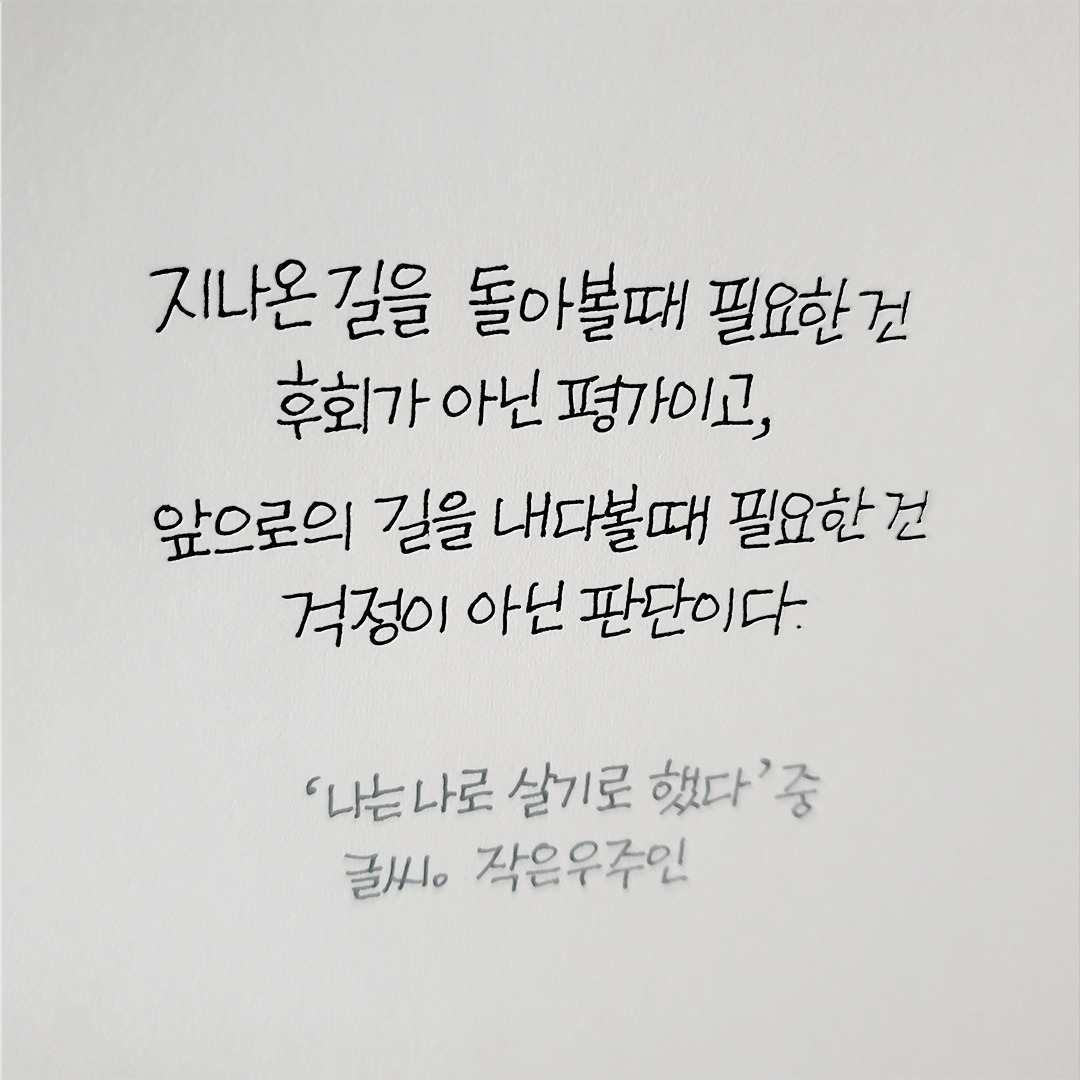 지나온 길을 돌아볼때 필요한 건
후회가 아닌 평가이고,
앞으로의 길을 내다볼때 필요한 건
걱정이 아닌 판단이다.
‘나는 나로 살기로 했다’ 중
글씨。 작은우주인